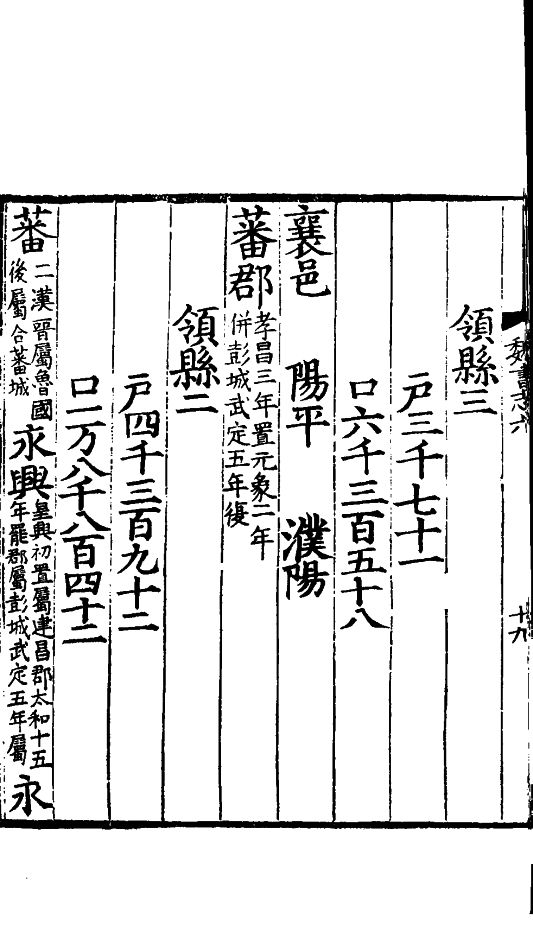 魏書志六 十九
領縣三
戸三千七十一
口六千三百五十八
襄邑 陽平 濮陽
蕃郡 孝昌三年置元象二年併彭城武定五年復
領縣二
戸四千三百九十二
口二万八千八百四十二
蕃 二漢晉屬魯國後屬合蕃城 永興 皇興初置屬建昌郡太和十五年罷郡屬彭城武定五年屬 永